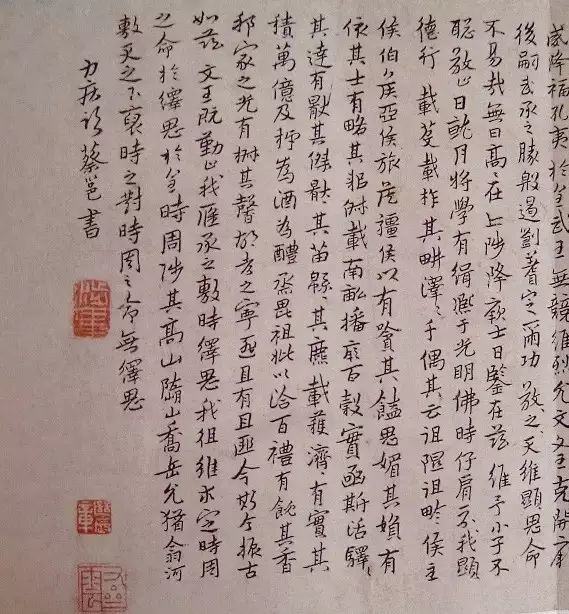 威降福孔夷 於皇武王無競維烈允文文王克開厥
後嗣武承之勝殷遏劉耆定爾功 敬之天維顯思命
不易哉無曰高〻在上陟降厥士日鑒在茲 維予小子不
聰敬止日就月將學有緝熙于光明佛時仔肩示我顯
德行 載芟載柞其畊澤〻千偶其云徂隰徂畛侯主
侯伯侯亞侯旅侯彊侯以有嗿其饁思媚其婦有
依其士有略其耜俶載南畝播厥百穀實函斯活驛〻
其達有厭其傑厭〻其苗緜〻其麃載穫濟〻有實其
積萬億及秭為酒為醴烝畀祖妣以洽百禮有飶其香
邦家之光有椒其馨胡考之寧匪且有且匪今斯今振古
如茲 文王既勤止我應承之敷時繹思我徂維求定時周
之命於繹思 於皇時周陟其高山隨山喬岳允猶翕河
敷天之下裒時之對時周之命無繹思
力疾 蔡邕書